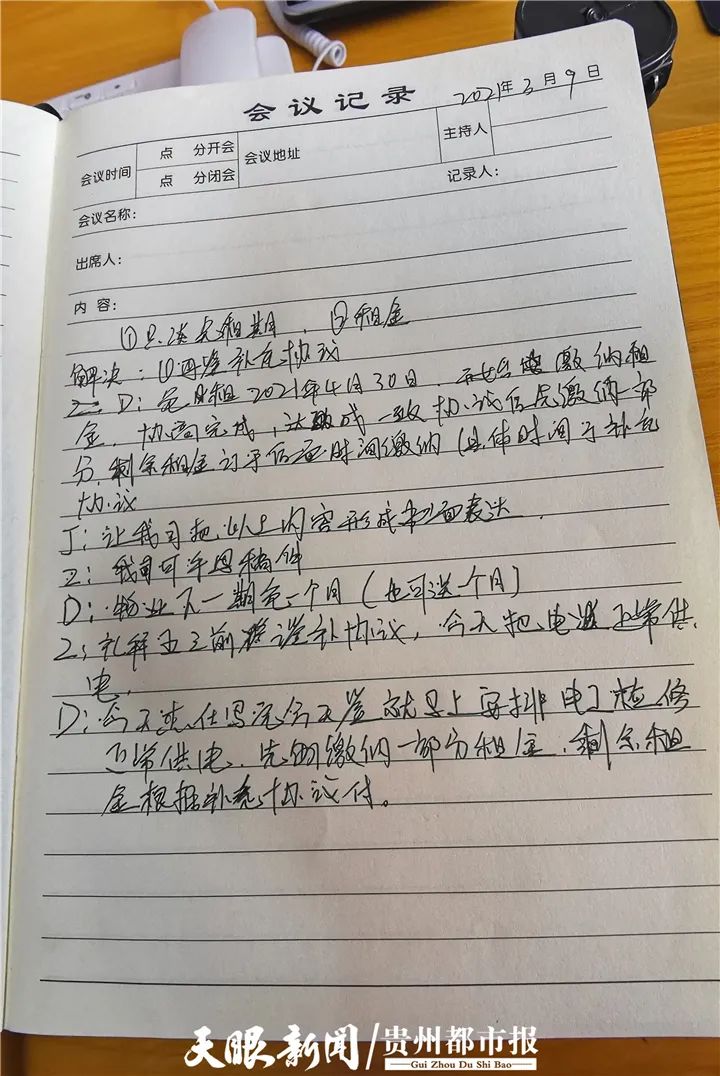 会议记录
2021年3月9日
会议时间 点 分开会 会议地址 主持人
点 分闭会
记录人:
会议名称:
出席人:
内 容:
①只谈免租期、②租金
解决:①再签补充协议
D:免租 2021年4月30日. 缴纳租
金. 协商完成,达成一致协议后先缴纳一部
分,剩余租金 时间缴纳(具体时间于补充
协议
J:让我司把以上内容形成书面表达.
我司可
D:物业下一期免一个月(也可送一个月)
Z:礼拜五之前 补协议,今天把电 正常供
电.
D:今天 今天签 就马上安排电工检修
正常供电. 先缴纳一部分租金,剩余租
金根据补充协议付。
天眼新闻/贵州都市报
Gui Zhou Du Shi Bao